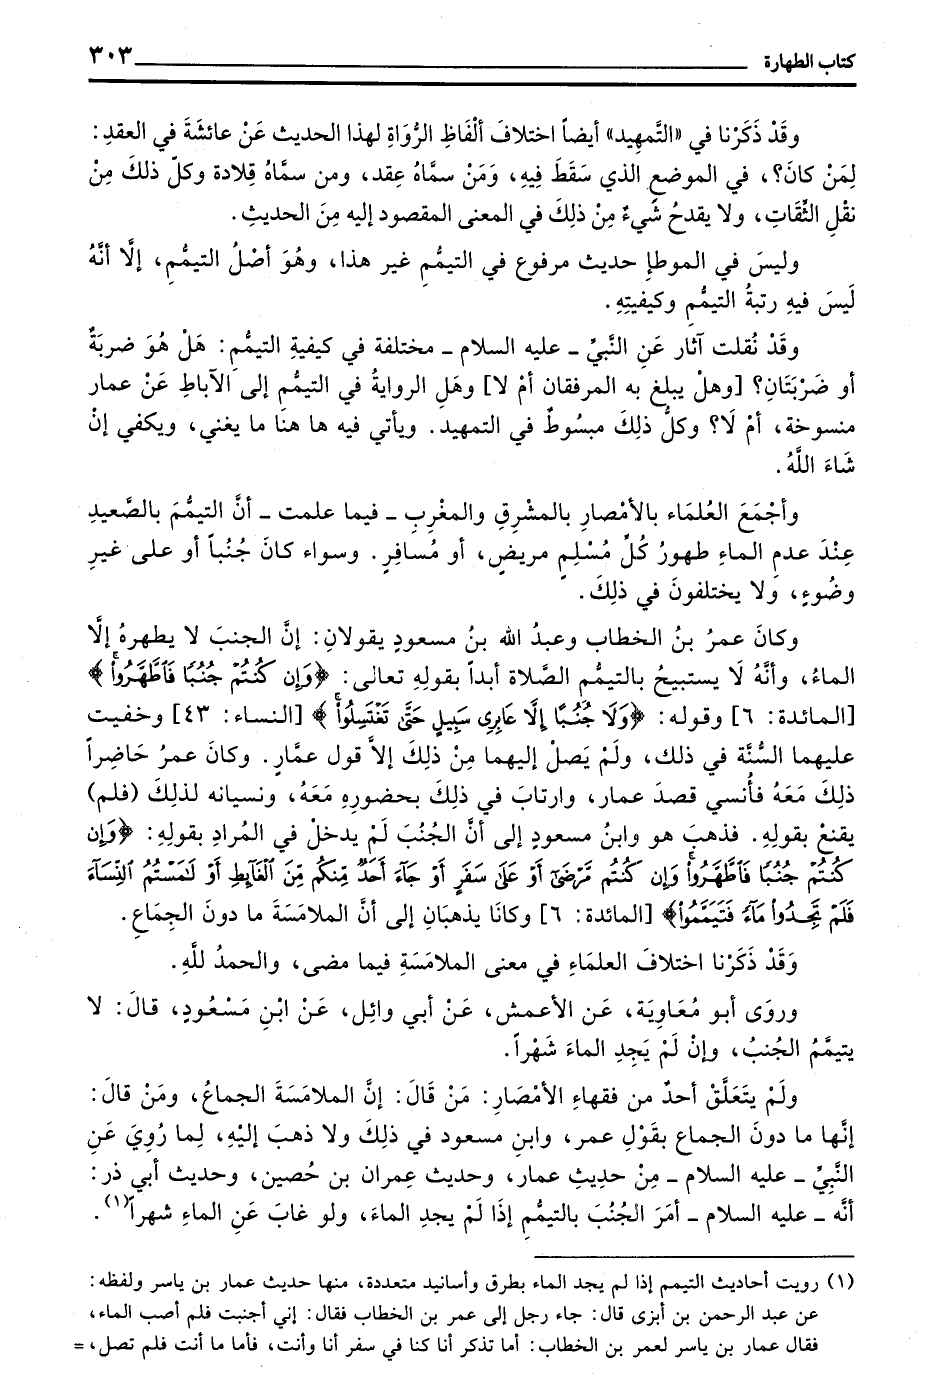 كتاب الطهارة ٣٠٣
وقَدْ ذَكَرْنا في «التَّمهِيد» أيضاً اختلافَ ألْفَاظِ الرُّوَاةِ لهذا الحديث عَنْ عائشَةَ في العقدِ:
لِمَنْ كانَ؟، في الموضعِ الذي سَقَطَ فِيهِ، وَمَنْ سمَّاهُ عِقد، ومن سمَّاهُ قِلادة وكلّ ذلكَ مِنْ
نقْلِ الثِّقَاتِ، ولا يقدحُ شَيءٌ مِنْ ذلِكَ في المعنى المقصود إليه مِنَ الحديثِ.
وليسَ في الموطإ حديث مرفوع في التيمُّمِ غير هذا، وهُوَ أصْلُ التيمُّمِ، إلَّا أنَّهُ
لَيسَ فيهِ رتبةُ التيمُّمِ وكيفيتِهِ.
وقَدْ نُقلت آثار عَنِ النَّبيِّ - عليه السلام - مختلفة في كيفيةِ التيمُّمِ: هَلْ هُوَ ضربَةٌ
أو ضَرْبَتَانِ؟ [وهلْ يبلغ به المرفقان أمْ لا] وهَلِ الروايةُ في التيمُّمِ إلى الآباطِ عَنْ عمار
منسوخة، أمْ لَا؟ وكلُّ ذلِكَ مبسُوطٌ في التمهيد. ويأتي فيه ها هنَا ما يغني، ويكفي إنْ
شَاءَ اللَّهُ.
وأجْمَعَ العُلمَاء بالأمْصارِ بالمشْرِقِ والمغْرِبِ - فيما علمت - أنَّ التيمُّمَ بالصَّعيدِ
عِنْدَ عدمِ الماءِ طهورُ كُلِّ مُسْلِمٍ مريضٍ، أو مُسافِرٍ. وسواء كانَ جُنُباً أو على غيرِ
وضُوءٍ، وَلا يختلفونَ في ذلِكَ.
وكانَ عمرُ بنُ الخطاب وعبدُ الله بنُ مسعودٍ يقولان: إنَّ الجنبَ لا يطهرهُ إلَّا
الماءُ، وأنَّهُ لَا يستبيحُ بالتيمُّمِ الصَّلاة أبداً بقولِهِ تعالى: ﴿وَإِن كُنتُمْ جُنُبًا فَاطَّهَّرُواْ﴾
[المائدة: ٦] وقوله: ﴿وَلَا جُنُبًا إِلَّا عَابِرِي سَبِيلٍ حَتَّىٰ تَغْتَسِلُواْ﴾ [النساء: ٤٣] وخفيت
عليهما السُّنَّة في ذلك، ولَمْ يَصلْ إليهما مِنْ ذلِكَ إلاَّ قول عمَّارٍ. وكانَ عمرُ حَاضِراً
ذلِكَ مَعَهُ فأُنسي قصدَ عمار، وارتابَ في ذلِكَ بحضورِهِ مَعَهُ، ونسيانه لذلِكَ (فلم)
يقنعْ بقولِهِ. فذهبَ هو وابنُ مسعودٍ إلى أنَّ الجُنُبَ لَمْ يدخلْ في المُرادِ بقولِهِ: ﴿وَإِن
كُنتُمْ جُنُبًا فَاطَّهَّرُواْ وَإِن كُنتُم مَّرْضَىٰ أَوْ عَلَىٰ سَفَرٍ أَوْ جَاءَ أَحَدٌ مِّنكُم مِّنَ الْغَائِطِ أَوْ لَامَسْتُمُ النِّسَاءَ
فَلَمْ تَجِدُواْ مَاءً فَتَيَمَّمُواْ﴾ [المائدة: ٦] وكانَا يذهبَانِ إلى أنَّ الملامَسَةَ ما دونَ الجِمَاعِ.
وَقَدْ ذَكَرْنا اختلافَ العلمَاءِ في معنى الملامَسَةِ فيما مضى، والحمدُ للَّهِ.
وروَى أبو مُعَاوِيَة، عَنِ الأعمش، عَنْ أبي وائل، عَنْ ابْنِ مَسْعُودٍ، قالَ: لا
يتيمَّمُ الجُنبُ، وإنْ لَمْ يَجِدِ الماءَ شَهْراً.
ولَمْ يتَعَلَّقْ أحدٌ من فقهاءِ الأمْصَارِ: مَنْ قَالَ: إنَّ الملامَسَةَ الجماعُ، ومَنْ قالَ:
إنَّها ما دونَ الجماعِ بقَوْلِ عمر، وابنِ مسعود في ذلِكَ ولا ذهبَ إليْهِ، لِما رُوِيَ عَنِ
النَّبيِّ - عليه السلام - مِنْ حديثِ عمار، وحديث عِمران بن حُصين، وحديث أبي ذر:
أنَّه - عليه السلام - أمَرَ الجُنُبَ بالتيمُّمِ إذَا لَمْ يجدِ الماءَ، ولو غابَ عَنِ الماءِ شهراً(١).
(١) رويت أحاديث التيمم إذا لم يجد الماء بطرق وأسانيد متعددة، منها حديث عمار بن ياسر ولفظه:
عن عبد الرحمن بن أبزى قال: جاء رجل إلى عمر بن الخطاب فقال: إني أجنبت فلم أصب الماء،
فقال عمار بن ياسر لعمر بن الخطاب: أما تذكر أنا كنا في سفر أنا وأنت، فأما ما أنت فلم تصل، =